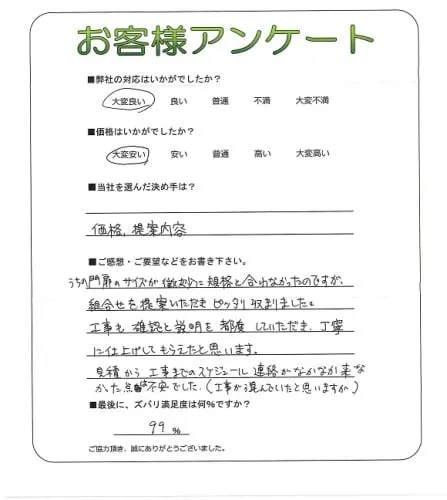 お客様アンケート
■弊社の対応はいかがでしたか？
大変良い 良い 普通 不満 大変不満
■価格はいかがでしたか？
大変安い 安い 普通 高い 大変高い
■当社を選んだ決め手は？
価格，提案内容
■ご感想・ご要望などをお書き下さい。
うちの門扉のサイズが微妙に規格と合わなかったのですが、
組合せを提案いただきピッタリ収まりました。
工事も確認と説明を都度していただき、丁寧
に仕上げてもらえたと思います。
見積から工事までのスケジュール連絡がなかなか来な
かった点は不安でした。(工事が混んでいたと思いますが)
■最後に、ズバリ満足度は何%ですか？
99 %
ご協力頂き、誠にありがとうございました。